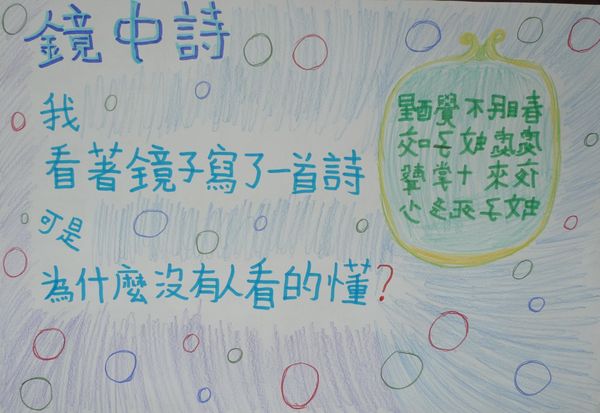 鏡中詩
我
看著鏡子寫了一首詩
可是
為什麼沒有人看的懂?
春眠不覺醒
處處蚊子咬
夜來十掌聲
蚊子死多少